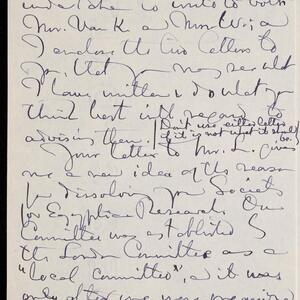 undertaken to write to both
Mrs. Van K. and Mrs. W. &
I enclose the two letters to
you, that you may see what
I have written & do what you
think best with regard to
advising them.
Don't use either letter
if it is not what it should
be.
Your letter to Mr. L. gives
me a new idea of the reason
for dissolving your Society
for Egyptian Research. Our
Committee was established by
the London Committee as a
"local Committee", & it was
only after we were